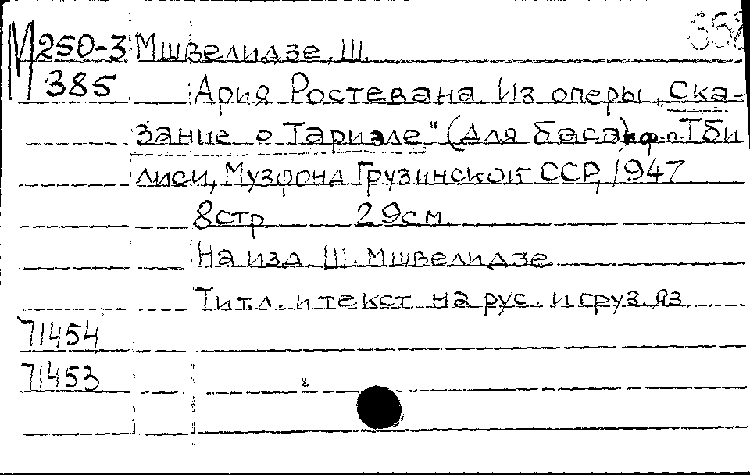 М250-3 Мшвелидзе, Ш.
385 Ария Ростевана. Из оперы „Ска-
зание о Тариэле" (Для баса) и ф-п. Тби
лиси, Музфонд Грузинской ССР, 1947
8 стр 29 см.
На изд. Ш. Мшвелидзе
Титл. и текст на рус. и груз. яз
71454
71453